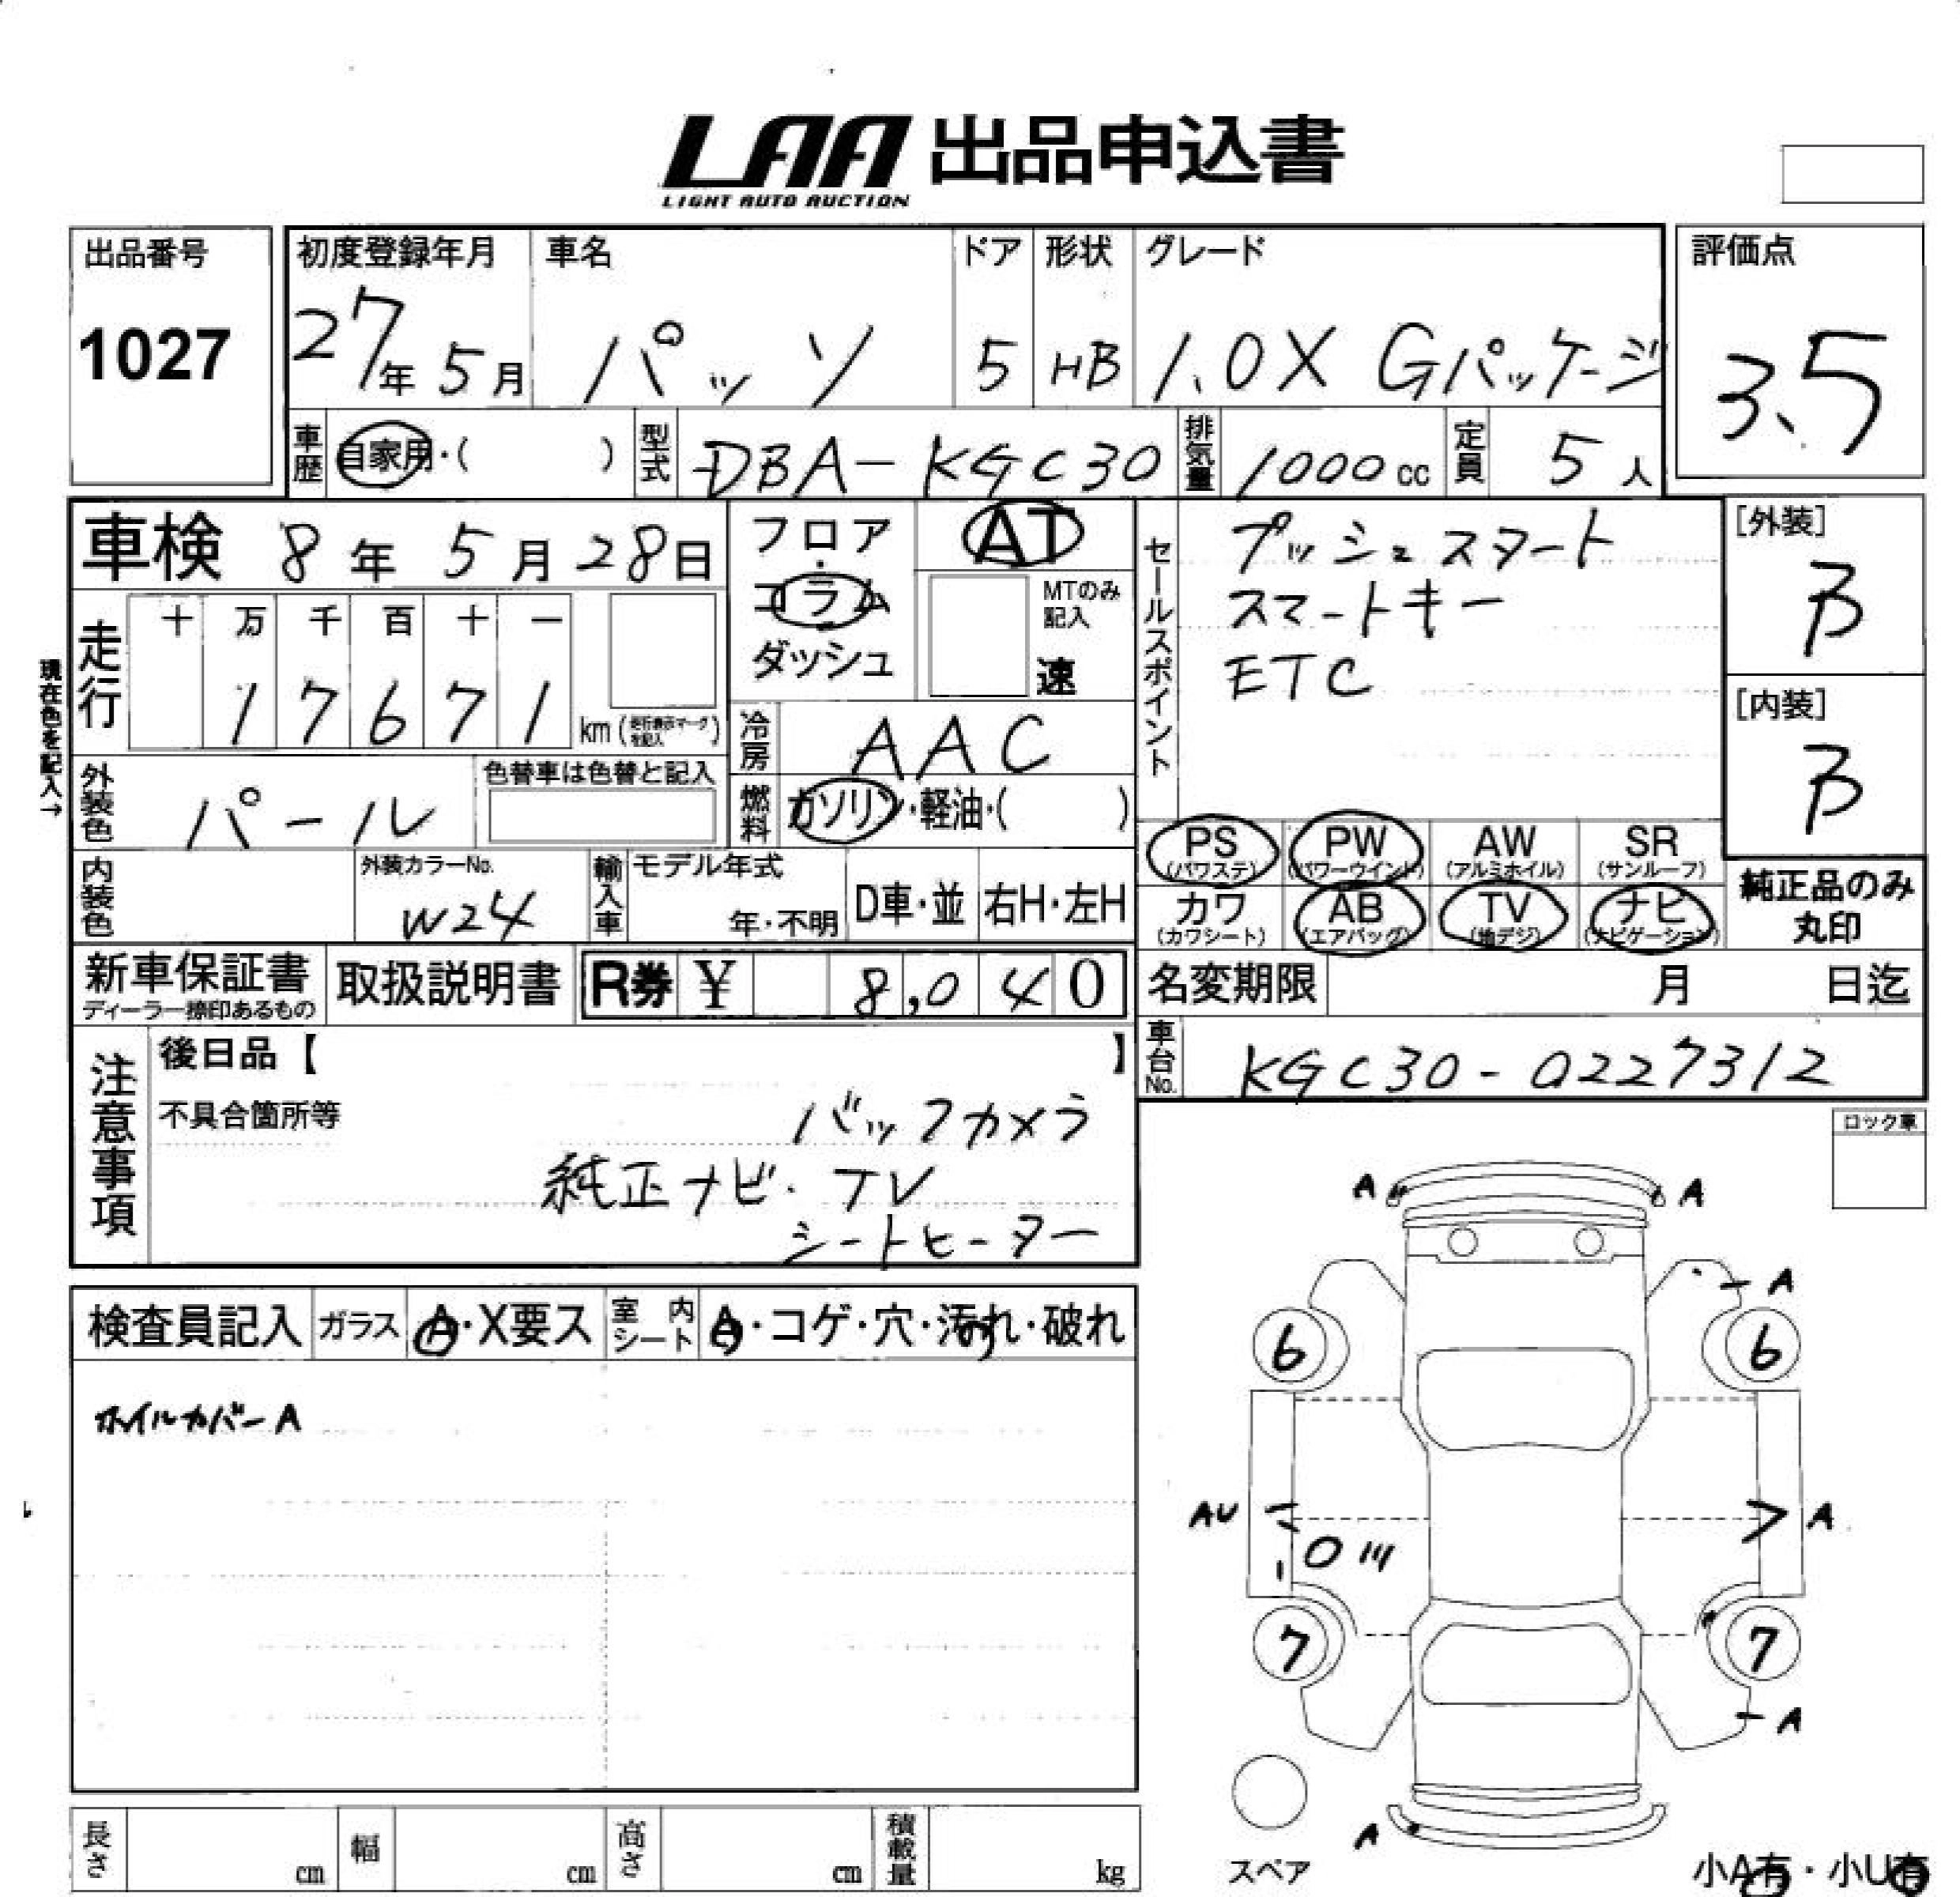 LAA 出品申込書
LIGHT AUTO AUCTION
出品番号
1027
初度登録年月
27年 5月
車名
パッソ
ドア
5
形状
HB
グレード
1.0X Gパッケージ
評価点
3.5
車歴 自家用・( )
型式 DBA-KGC30
排気量 1000cc
定員 5人
車検 8年 5月 28日
フロア・コラム ダッシュ
AT
MTのみ記入
速
セールスポイント
プッシュスタート
スマートキー
ETC
[外装]
B
[内装]
B
現在色を記入→
走行 十 万 千 百 十 一
1 7 6 7 1 km
冷房 AAC
燃料 ガソリン・軽油・( )
外装色 パール
色替車は色替と記入
内装色
外装カラーNo.
W24
輸入車 モデル年式
年・不明
D車・並
右H・左H
PS (パワステ)
PW (パワーウインド)
AW (アルミホイル)
SR (サンルーフ)
カワ (カワシート)
AB (エアバッグ)
TV (地デジ)
ナビ (ナビゲーション)
純正品のみ丸印
新車保証書
ディーラー捺印あるもの
取扱説明書
R券 ¥ 8,040
名変期限 月 日迄
車台No. KGC30-0227312
注意事項
後日品【 】
不具合箇所等
バックカメラ
純正ナビ・TV
シートヒーター
ロック車
検査員記入 ガラス A・X要ス 室内シート A・コゲ・穴・汚れ・破れ
ホイルカバーA
A A
A
6 6
AU A
7 7
A
A
スペア
小A有・小U有
長さ cm 幅 cm 高さ cm 積載量 kg